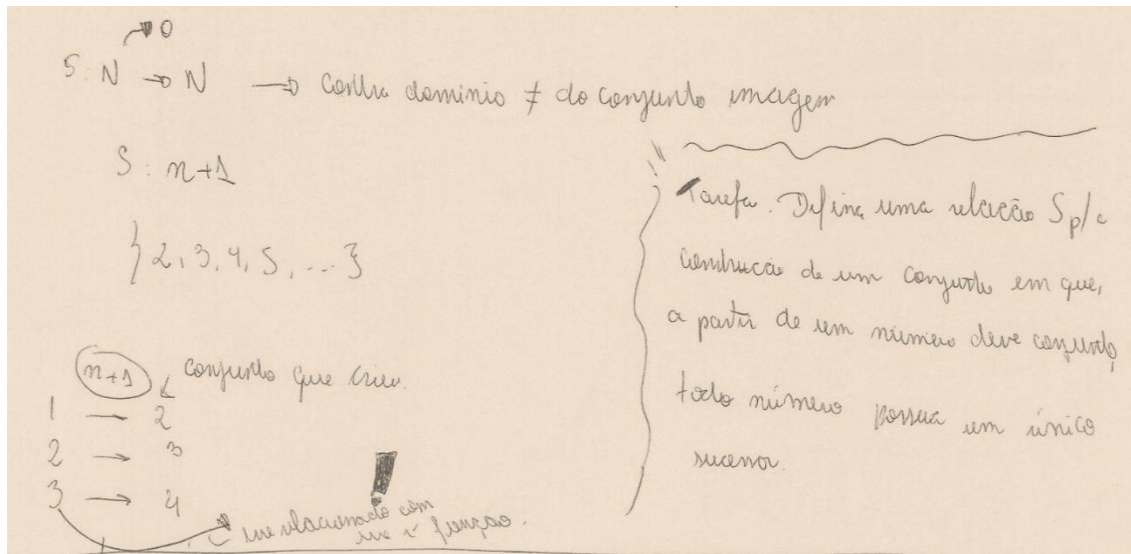 0
S: N → N → Contra domínio ≠ do conjunto imagem
S: n+1
{2, 3, 4, 5, ...}
n+1 conjunto que criei.
1 → 2
2 → 3
3 → 4
relacionado com
função.
Tarefa. Defina uma relação S p/ a
construção de um conjunto em que,
a partir de um número deve conjunto,
todo número possua um único
sucessor.